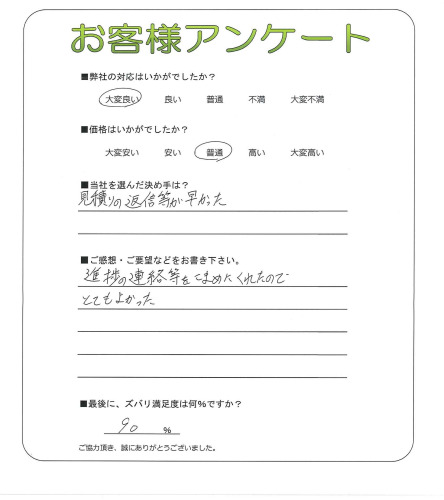 お客様アンケート
■弊社の対応はいかがでしたか？
大変良い 良い 普通 不満 大変不満
■価格はいかがでしたか？
大変安い 安い 普通 高い 大変高い
■当社を選んだ決め手は？
見積りの返信等が早かった
■ご感想・ご要望などをお書き下さい。
進捗の連絡等をこまめにくれたので
とてもよかった
■最後に、ズバリ満足度は何％ですか？
90 ％
ご協力頂き、誠にありがとうございました。